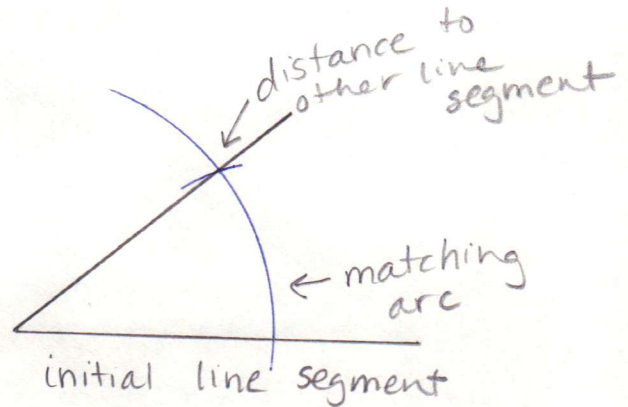 distance to
other line
segment
matching
arc
initial line segment